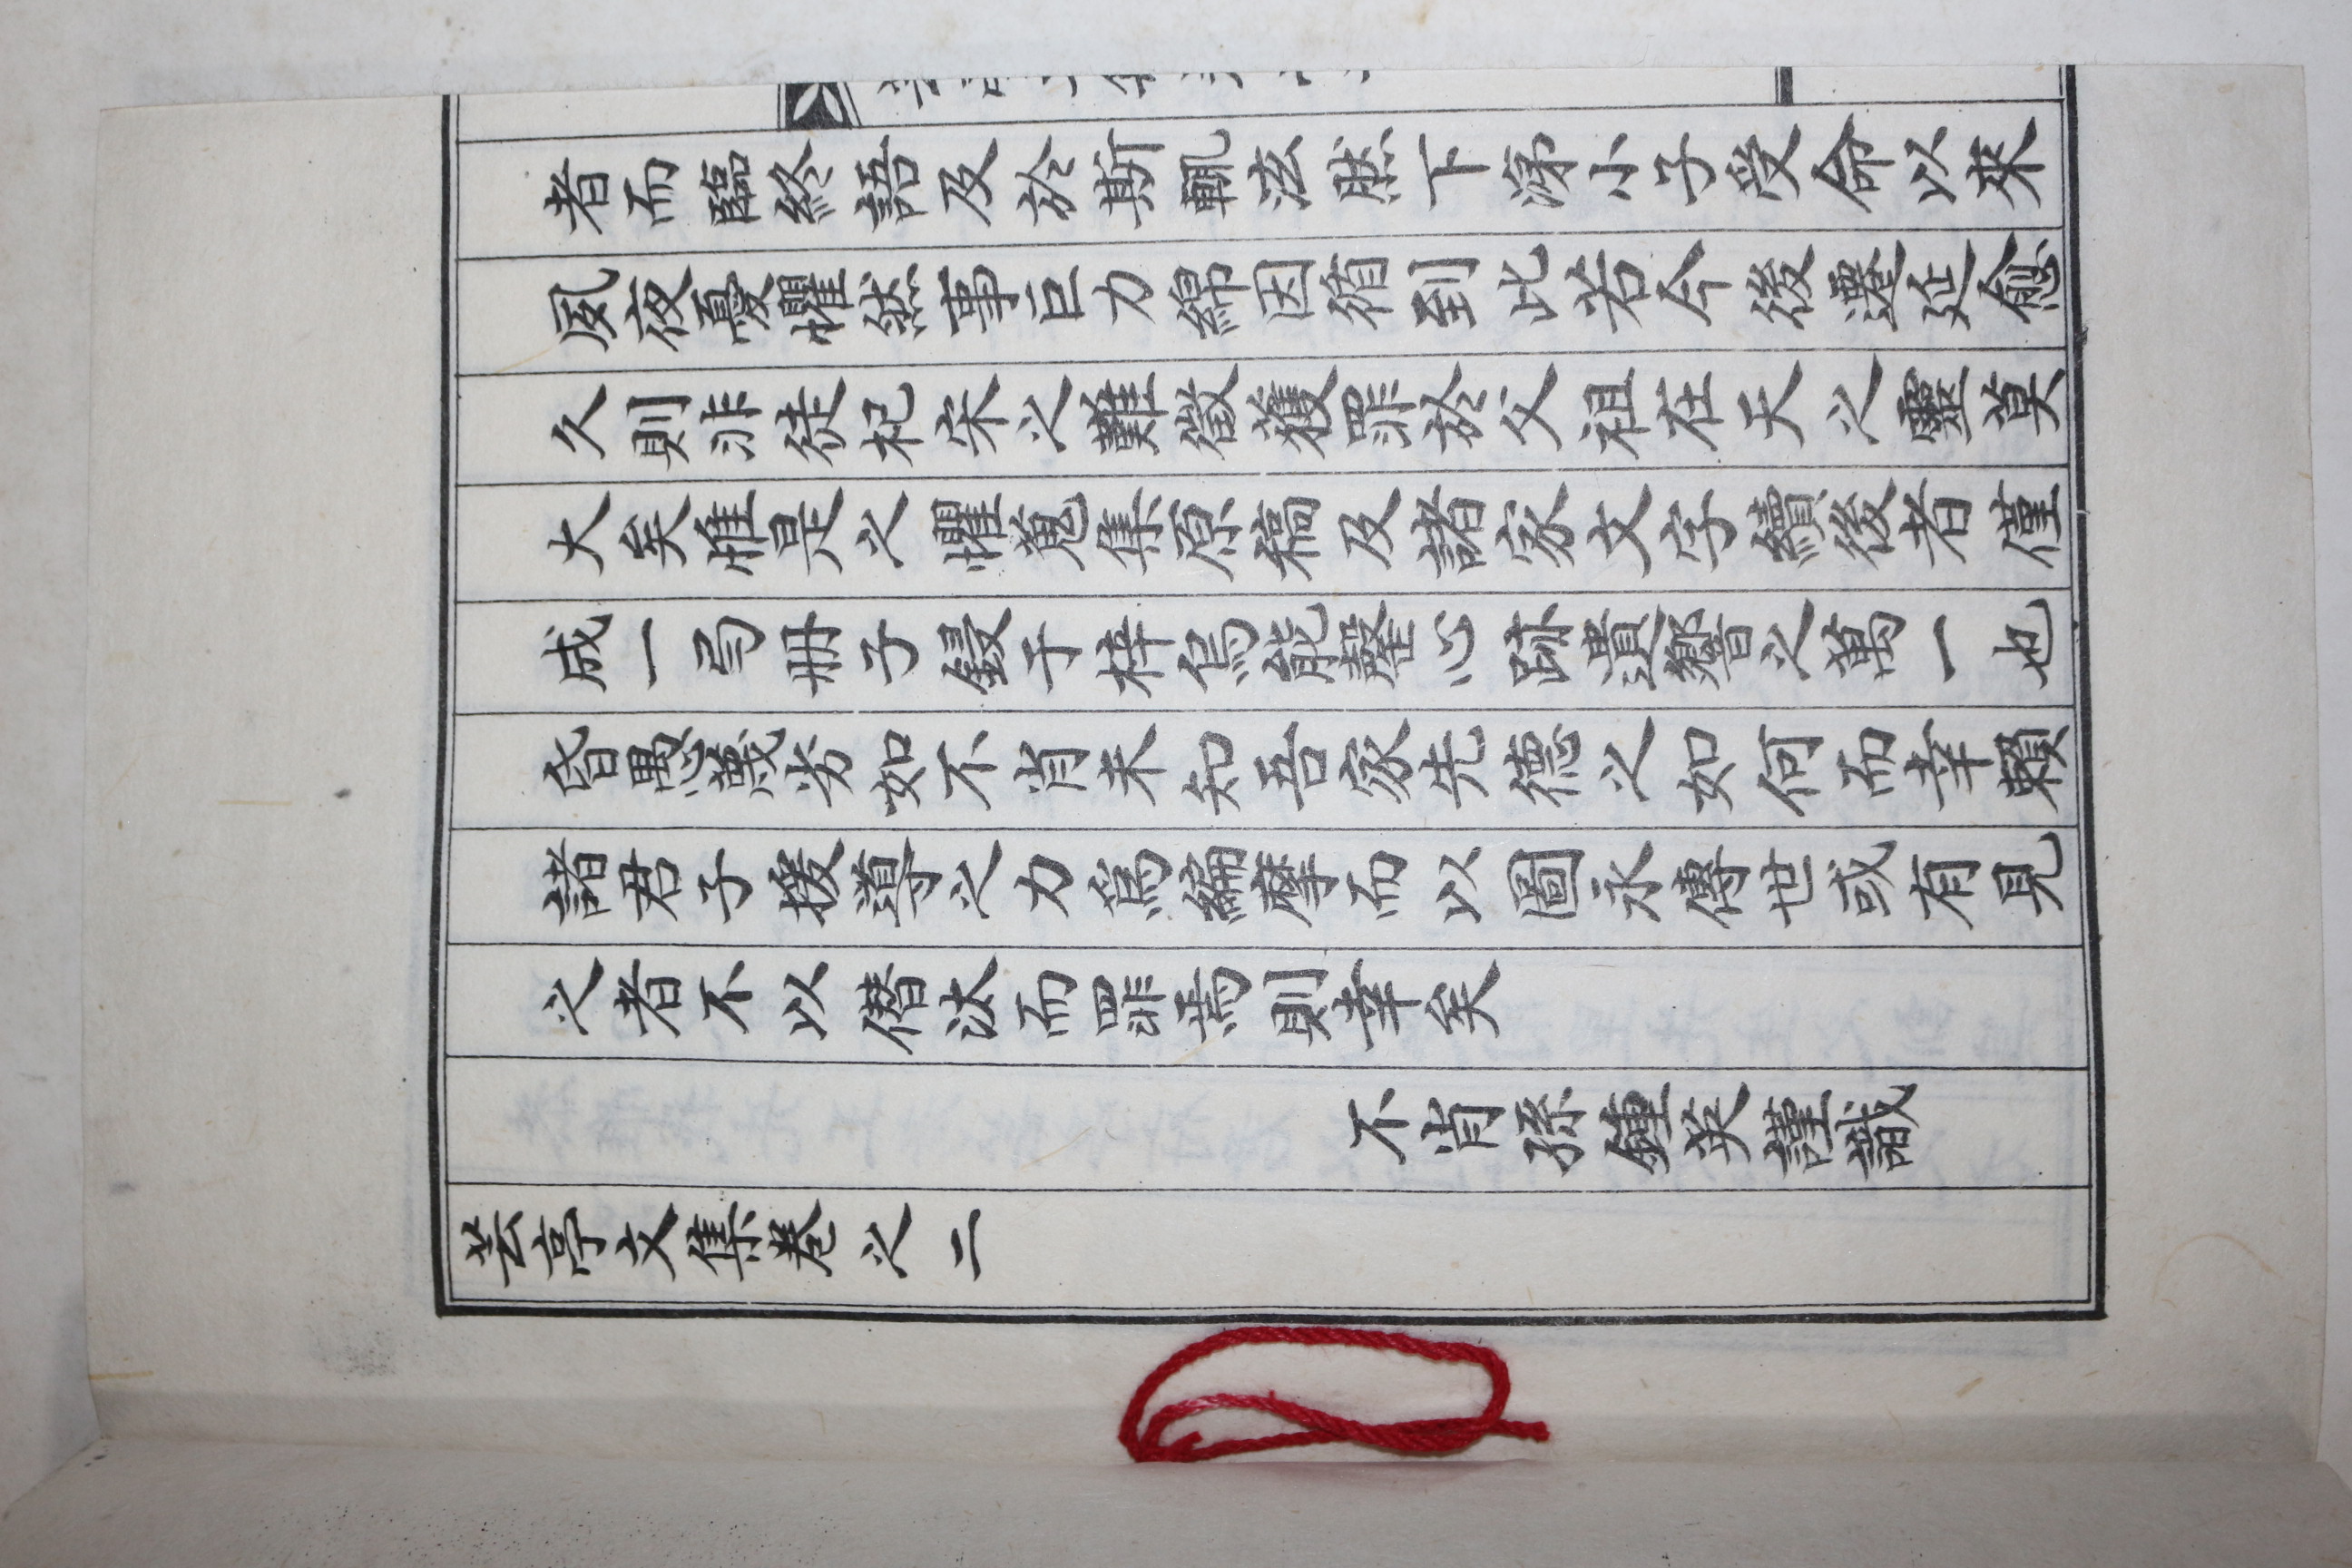 者而臨終語及於斯輒泫然下涕小子受命以來
夙夜憂懼然事巨力綿因循到此若今後遷延愈
久則非徒杞宋之難徵獲罪於父祖在天之靈莫
大矣惟是之懼蒐集原稿及諸家文字續後者僅
成一弓册子鋟于梓烏能罄心跡遺響之萬一也
昏愚蔑劣如不肖未知吾家先德之如何而幸賴
諸君子援導之力爲編摩而以圖永傳世或有見
之者不以僭汰而罪焉則幸矣
不肖孫鍾英謹識
芸亭文集卷之二